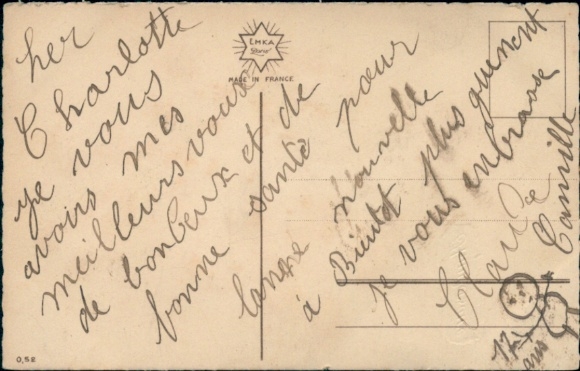 her
Charlotte
Je vous
avoirs mes
meilleurs vouse
de bonbeux et de
bonne santé pœur
l'année nouvelle
à Bientot plus quement
je vous enbrasse
Claude Camille
12
ans
EMKA
MADE IN FRANCE
0,5 E